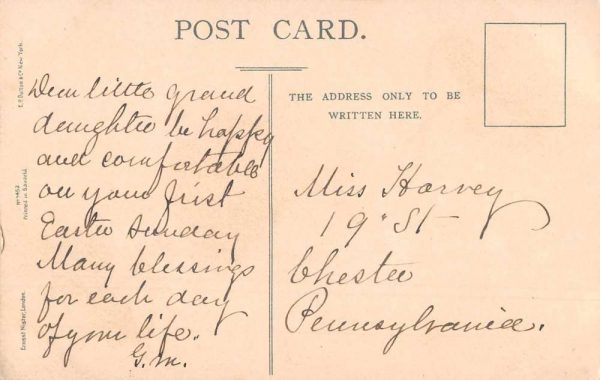 POST CARD.
Dear little grand
daughter be happy
and comfortable
on your first
Easter Sunday
Many blessings
for each day
of your life.
G.M.
THE ADDRESS ONLY TO BE
WRITTEN HERE.
Miss Harvey
19" St
Chester
Pennsylvania.
E. P. Dutton & Co. New York.
Printed in Bavaria.
Ernest Nister, London.